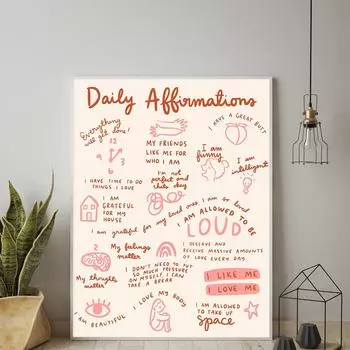 Daily Affirmations
Everything
will get done!
12
3
6
MY FRIENDS
LIKE ME FOR
WHO I AM
I HAVE A GREAT BUTT
I am
funny
I am
intelligent
I HAVE TIME TO DO
THINGS I LOVE
I'm not
perfect and
thats okay
I AM
GRATEFUL
FOR MY
HOUSE
I am grateful for my loved ones, I am so loved
I AM ALLOWED TO BE
LOUD
I DESERVE AND
RECEIVE MASSIVE AMOUNTS
OF LOVE EVERY DAY.
My feelings
matter
My thoughts
matter
I DON'T NEED TO PUT
SO MUCH PRESSURE
ON MYSELF, I CAN
TAKE A BREAK
I LIKE ME
I LOVE ME
I AM BEAUTIFUL
I LOVE MY BODY
I AM ALLOWED
TO TAKE UP
space